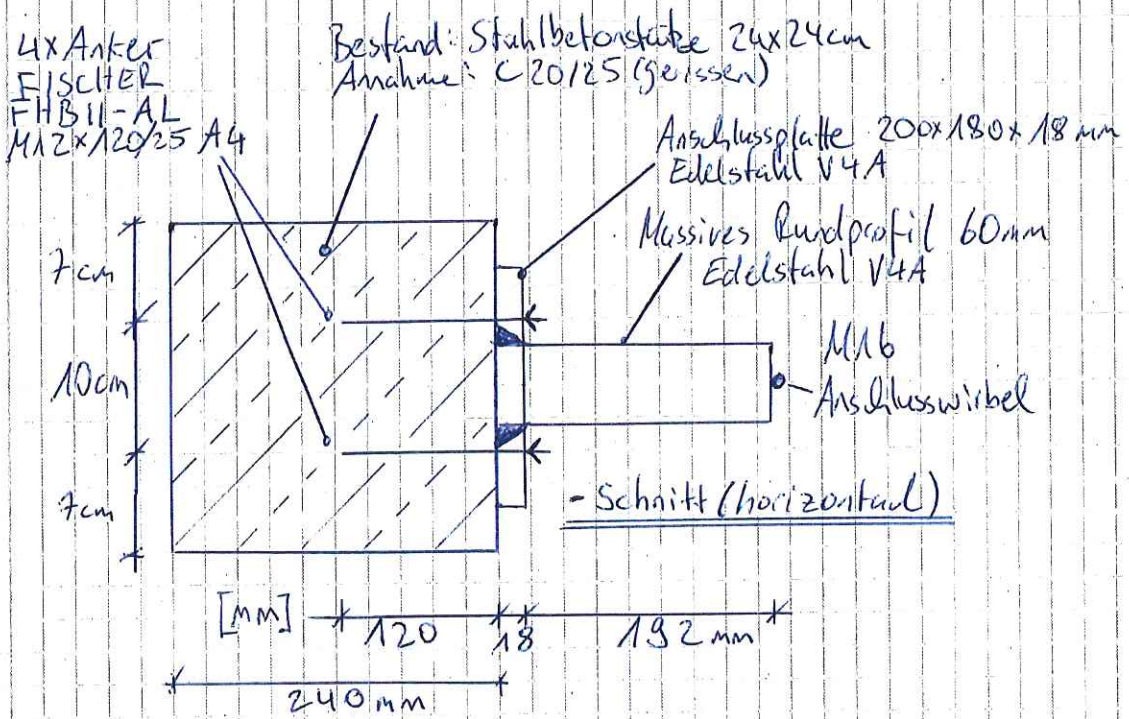 4x Anker
FISCHER
FHB II-AL
M12x120/25 A4
Bestand: Stahlbetonstütze 24x24cm
Annahme: C 20/25 (gerissen)
Anschlussplatte 200x180x18mm
Edelstahl V4A
Massives Rundprofil 60mm
Edelstahl V4A
M16
Anschlusswirbel
7cm
10cm
7cm
- Schnitt (horizontal)
[mm] 120 18 192mm
240mm